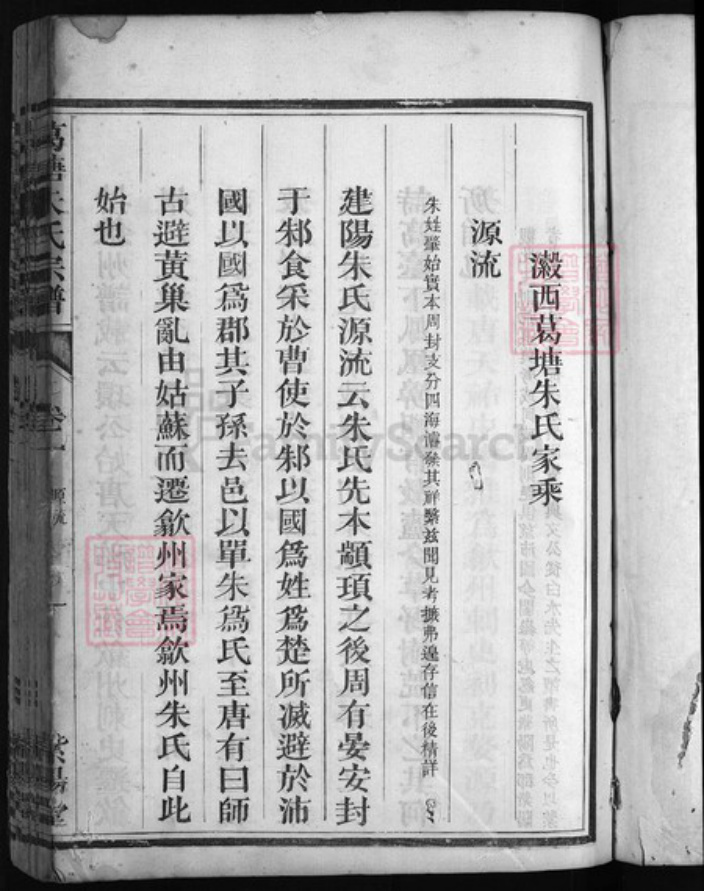 瀫西葛塘朱氏家乘
源流
朱姓肇始實本周封支分四海濬發其祥繄玆聞見考摭弗遑存信在後精詳
建陽朱氏源流云朱氏先本顓頊之後周有晏安封
于邾食采於曹使於邾以國爲姓爲楚所滅避於沛
國以國爲郡其子孫去邑以單朱爲氏至唐有曰師
古避黃巢亂由姑蘇而遷歙州家焉歙州朱氏自此
始也
葛塘朱氏宗譜
卷一
源流
一
紫陽堂
FamilySearch